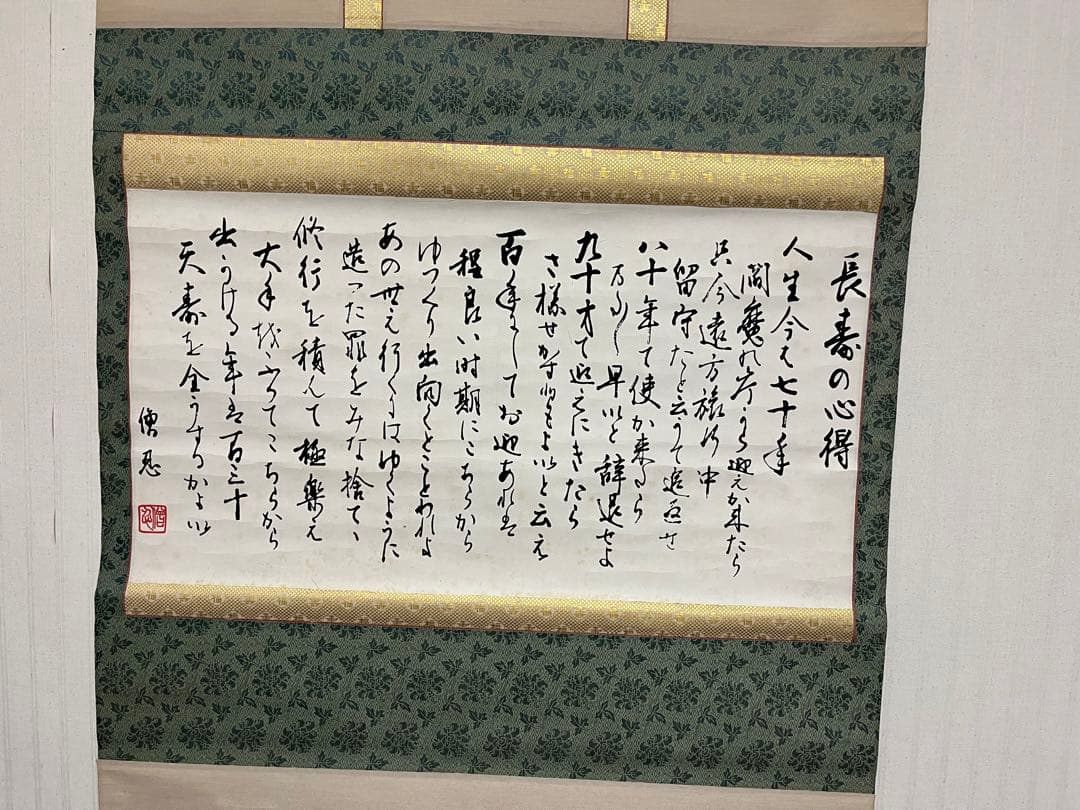 長寿の心得
人生今は七十年
閻魔の庁から迎えが来たら
只今遠方旅行中
留守だと云うて追返せ
八十年て使が来たら
まだ早いと辞退せよ
九十才て迎えにきたら
さ様せかずともよいと云え
百年にしてお迎あれば
程良い時期にこちらから
ゆっくり出向くとことわれよ
あの世え行くにはゆくように
造った罪をみな捨てゝ
修行を積んて極楽え
大手ってこちらから
出かける年は百三十
天寿を全うするがよい
僧